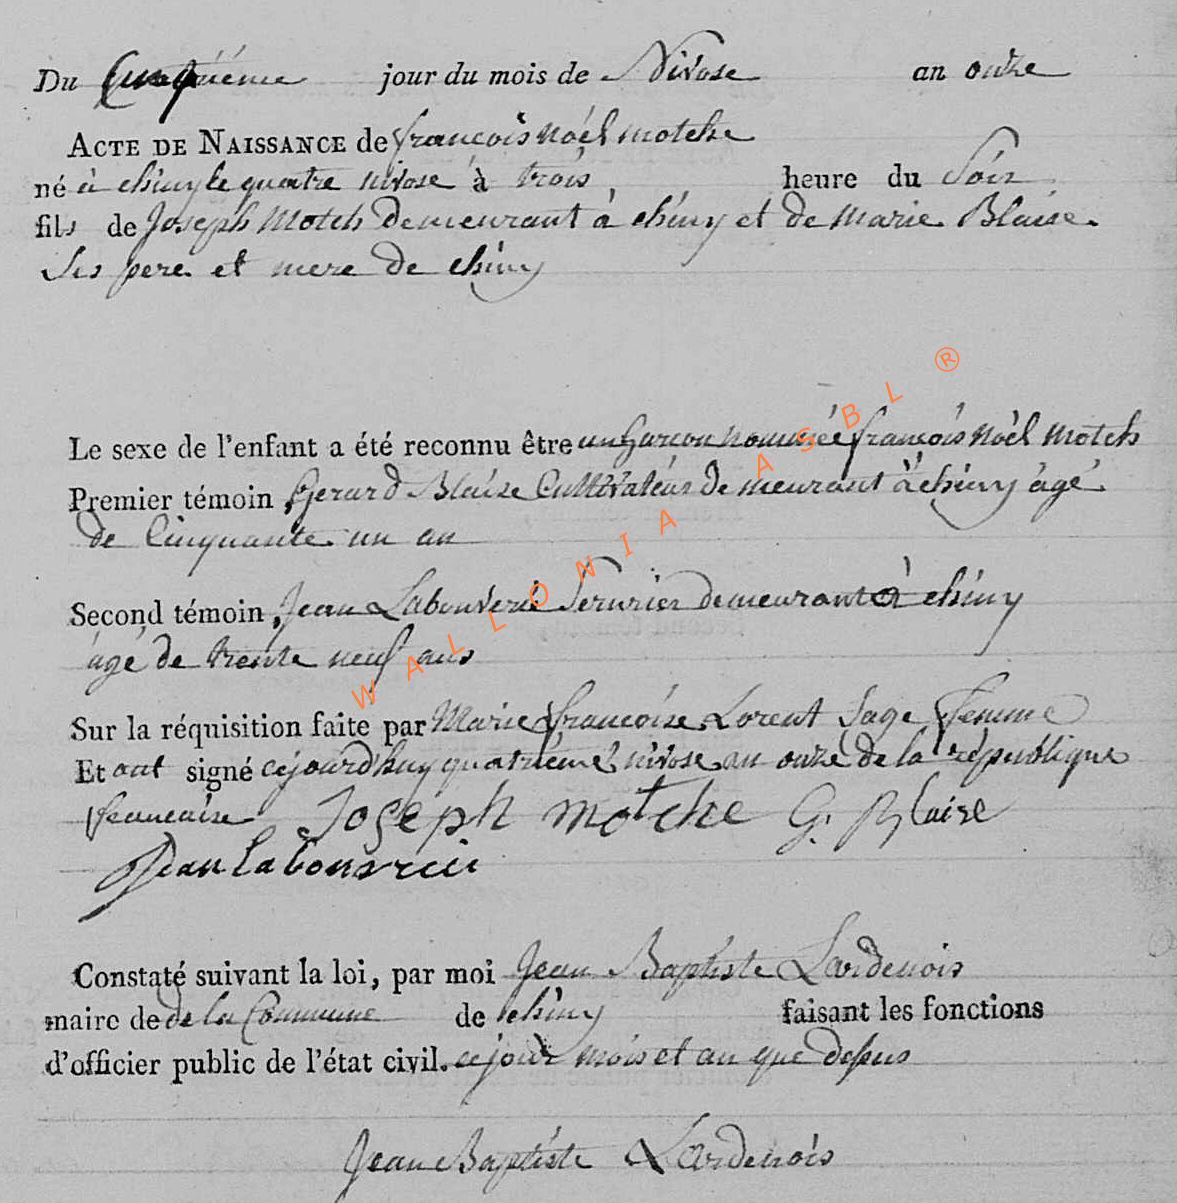 Du Cinquiéme jour du mois de Nivose an onze
ACTE DE NAISSANCE de françois Noél motche
né à chiny le quatre nivose à trois heure du Soir
fils de Joseph Motch Demeurant à chiny et de Marie Blaise
Ses pere et mere de chiny
Le sexe de l'enfant a été reconnu être un Garcon nommée françois Noèl Motch
Premier témoin Gerard Blaise Cultivateur demeurant à chiny agé
de Cinquante un an
Second témoin, Jean Laboüverie Serurier demeurant à chiny
âgé de trente neuf ans
Sur la réquisition faite par Marie françoise Lorent Sage femme
Et ont signé cejourd'huy quatrieme nivose an onze de la république
francaise Joseph motche G. Blaise
Jean labouvrie
Constaté suivant la loi, par moi Jean Baptiste Lardenois
maire de de la Commune de chiny faisant les fonctions
d'officier public de l'état civil. ce jour mois et an que dessus
Jean Baptiste Lardenois
WALLONIA ASBL ®